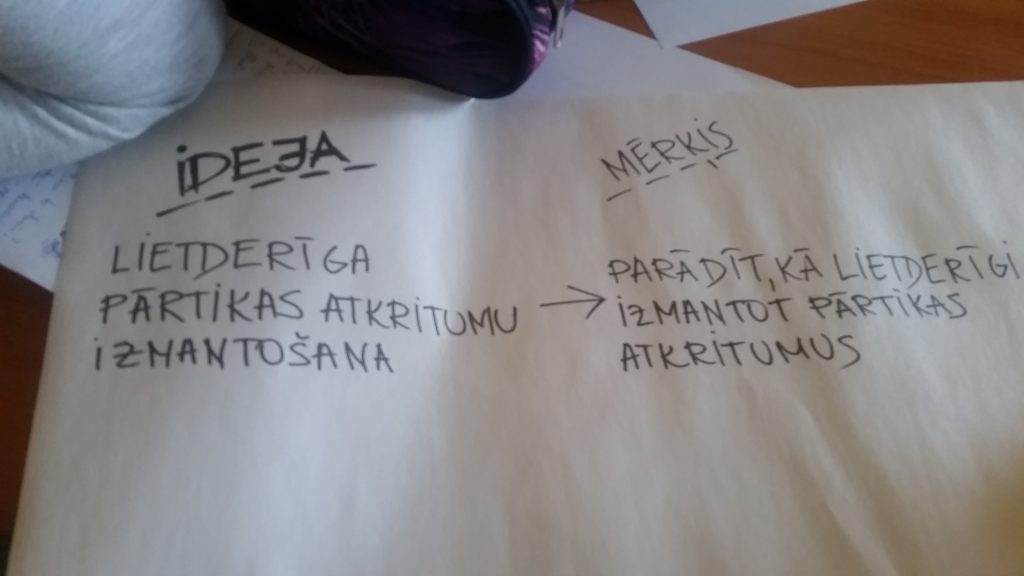 IDEJA
LIETDERĪGA
PĀRTIKAS ATKRITUMU
IZMANTOŠANA
→
MĒRĶIS
PARĀDĪT, KĀ LIETDERĪGI
IZMANTOT PĀRTIKAS
ATKRITUMUS